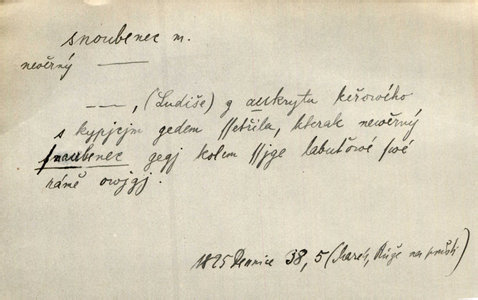 snoubenec m.
nevěrný ——
——, (Ludiše) z auskrytu keřového
s kypjcjm gedem ſſetřila, kterak newěrný
ſnaubenec gegj kolem ſſjge labuťowé ſwé
rámě owjgj.
1825 Dennice 38, 5 (Marek, Růže na poušti)